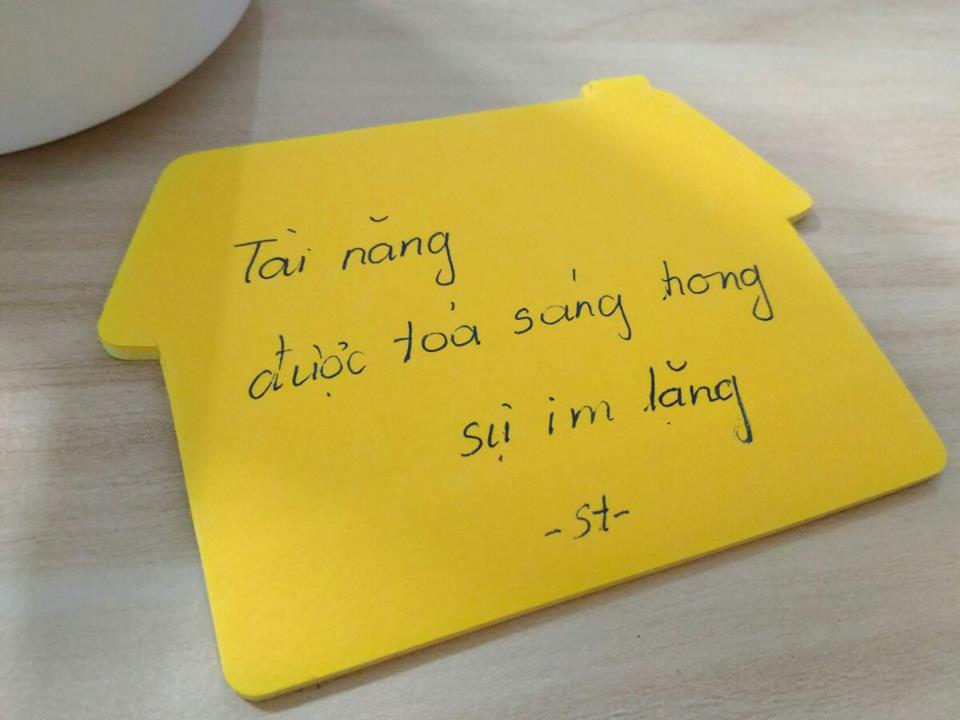 Tài năng
được toả sáng trong
sự im lặng
-st-